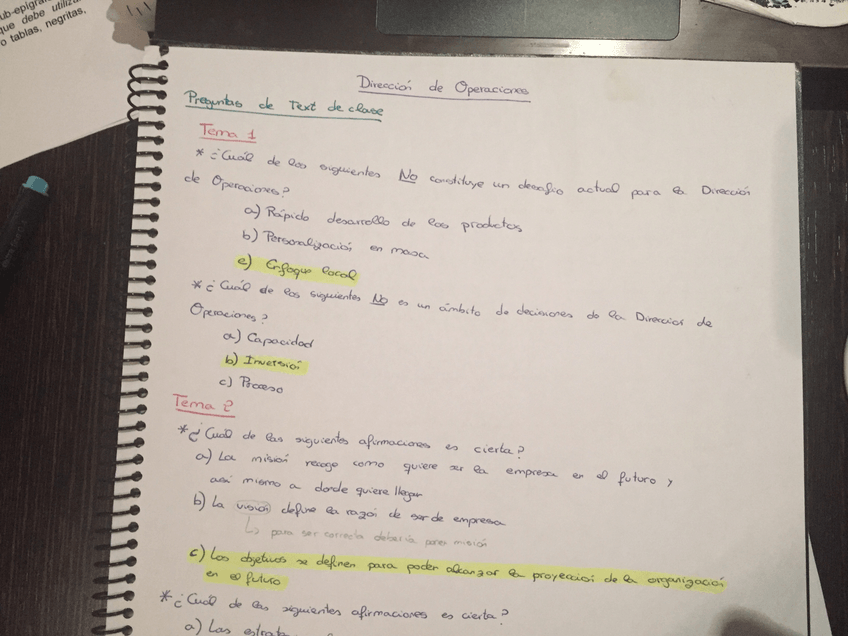 ub-epígraf
que debe utiliza
o tablas, negritas,
Dirección de Operaciones
Preguntas de Text de clase
Tema 1
* ¿Cuál de los siguientes No constituye un desafío actual para la Dirección
de Operaciones?
a) Rápido desarrollo de los productos
b) Personalización en masa
c) Enfoque local
* ¿Cuál de los siguientes No es un ámbito de decisiones de la Dirección de
Operaciones?
a) Capacidad
b) Inversión
c) Proceso
Tema 2
* ¿Cuál de las siguientes afirmaciones es cierta?
a) La misión recoge como quiere ser la empresa en el futuro y
así mismo a donde quiere llegar
b) La visión define la razón de ser de empresa
↳ para ser correcta debería poner misión
c) Los objetivos se definen para poder alcanzar la proyección de la organización
en el futuro
* ¿Cuál de las siguientes afirmaciones es cierta?
a) Las estrate